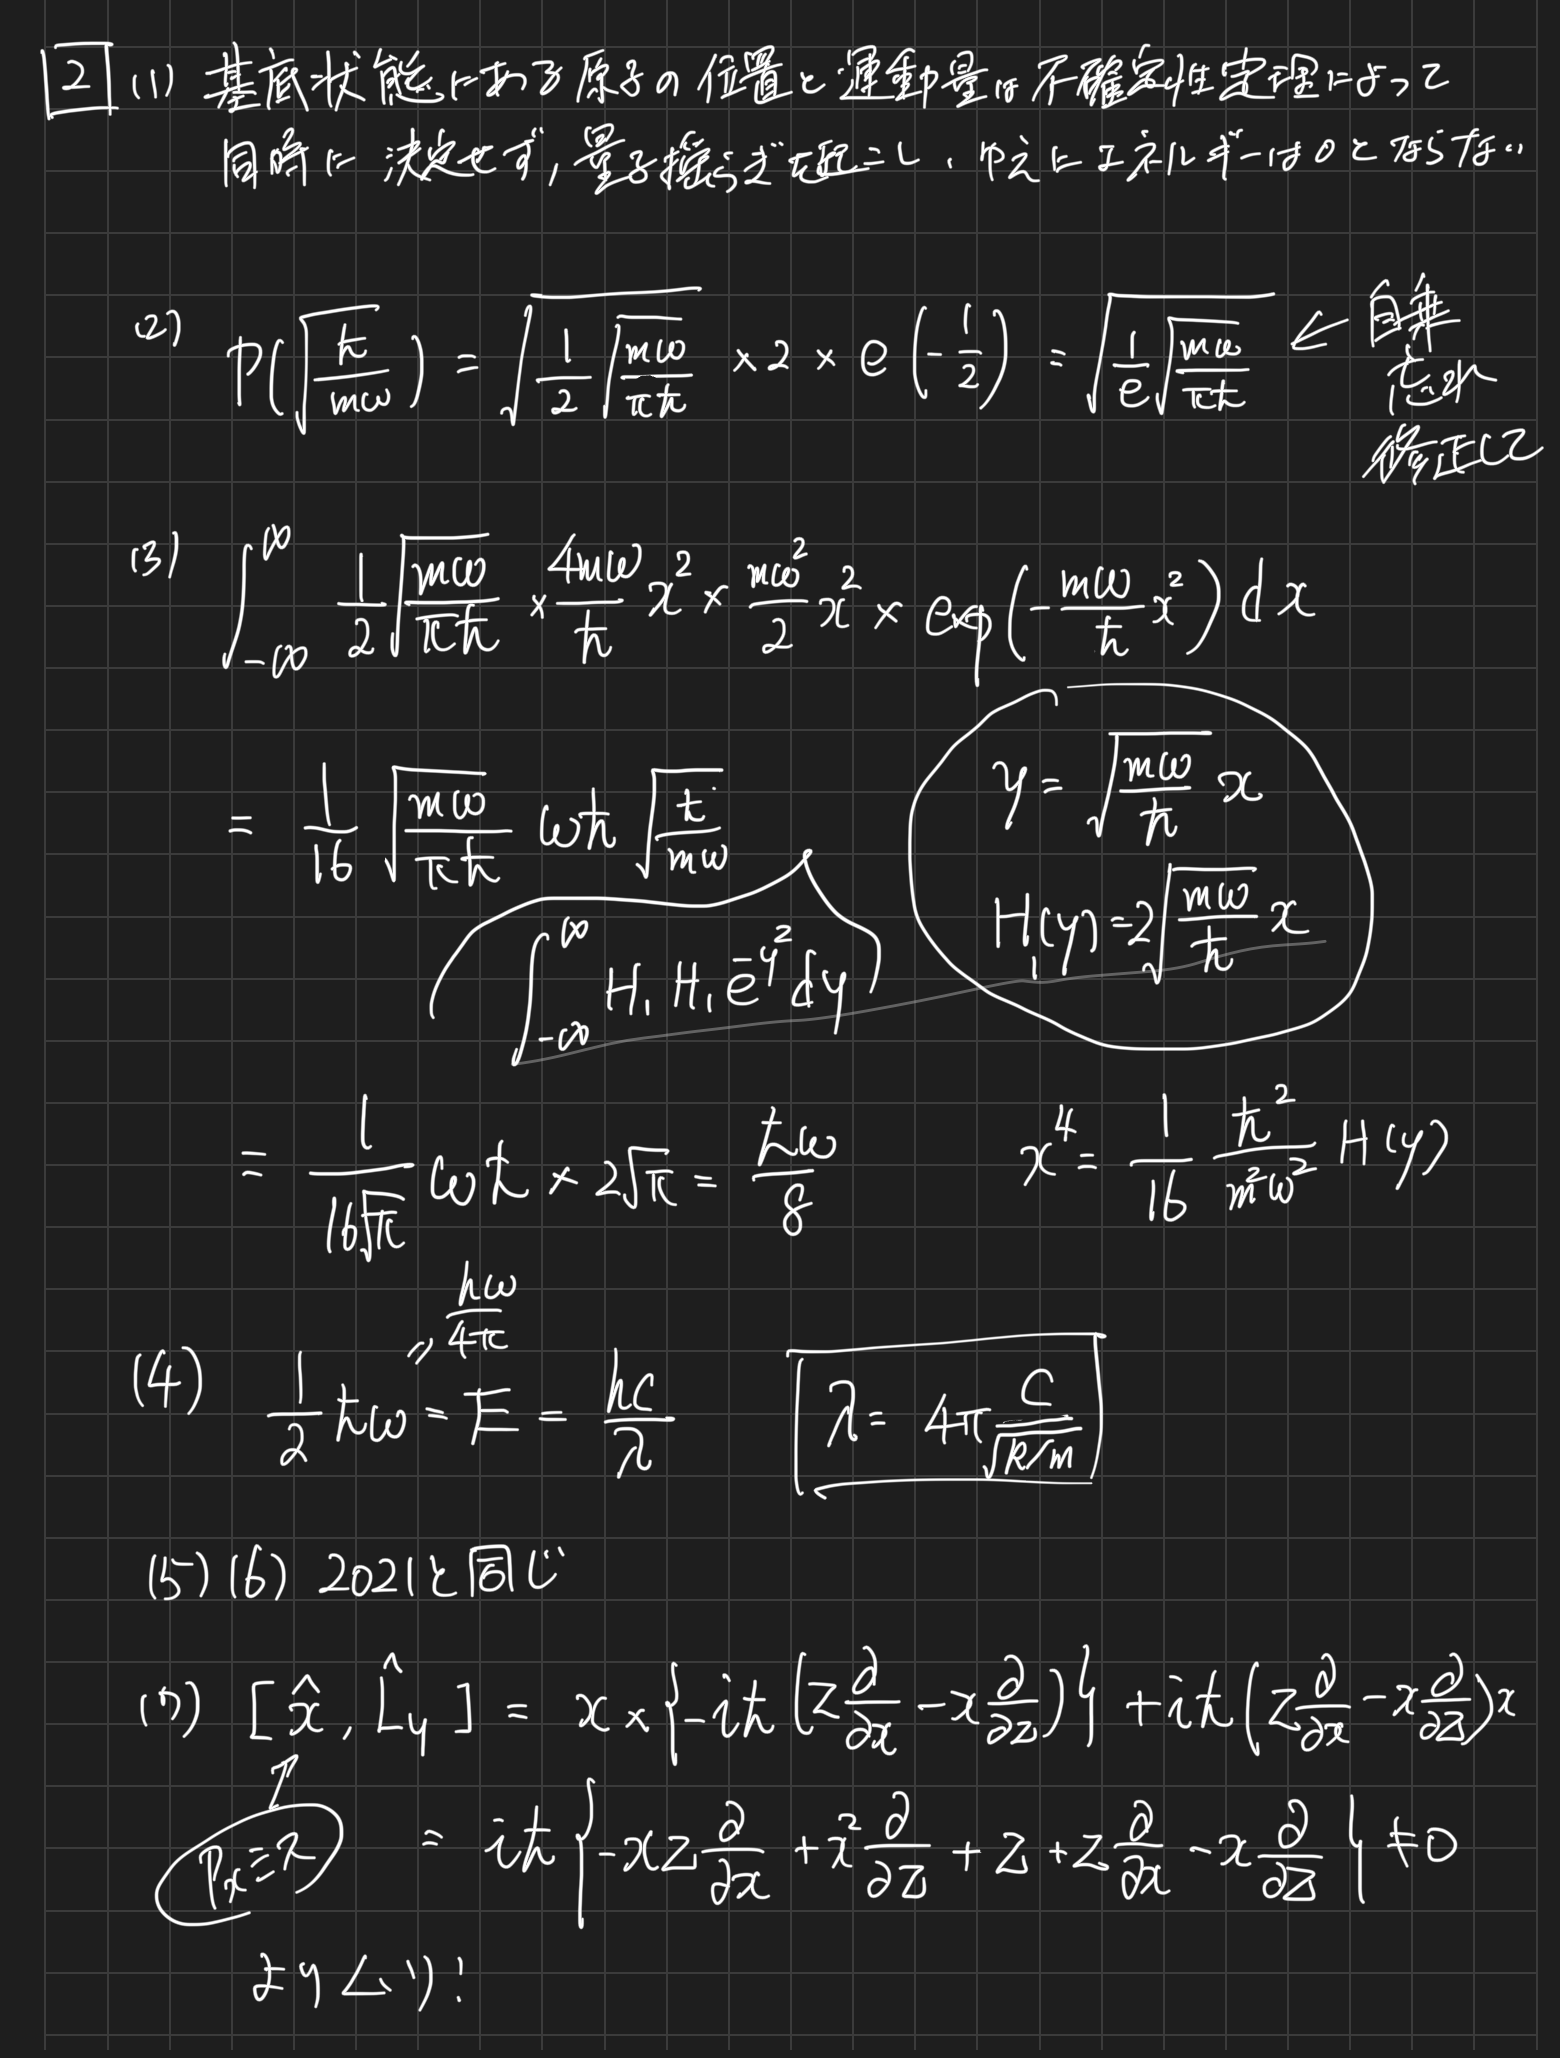 2 (1) 基底状態にある原子の位置と運動量は不確定性定理によって
同時に決定せず, 量子揺らぎを起こし、ゆえにエネルギーは0とならない
(2) P(√(ℏ/mω)) = √(1/2 √(mω/πℏ)) × 2 × e(-1/2) = √(1/e √(mω/πℏ)) ← 自乗
忘れ
修正して
(3) ∫_{-∞}^{∞} 1/2 √(mω/πℏ) × 4mω/ℏ x² × mω²/2 x² × exp(-mω/ℏ x²) dx
= 1/16 √(mω/πℏ) ωℏ √(ℏ/mω)
∫_{-∞}^{∞} H₁ H₁ e^{-y²} dy
y = √(mω/ℏ) x
H₁(y) = 2√(mω/ℏ) x
= 1/(16√π) ωℏ × 2√π = ℏω/8
x⁴ = 1/16 ℏ²/(m²ω²) H(y)
hω/4π
(4) 1/2 ℏω = E = hc/λ
λ = 4π c/√(k/m)
(5)(6) 2021と同じ
(7) [x̂, L̂y] = x × {-iℏ(z ∂/∂x - x ∂/∂z)} + iℏ(z ∂/∂x - x ∂/∂z)x
↑
= iℏ{-xz ∂/∂x + x² ∂/∂z + z + z ∂/∂x - x ∂/∂z} ≠ 0
よりムリ!